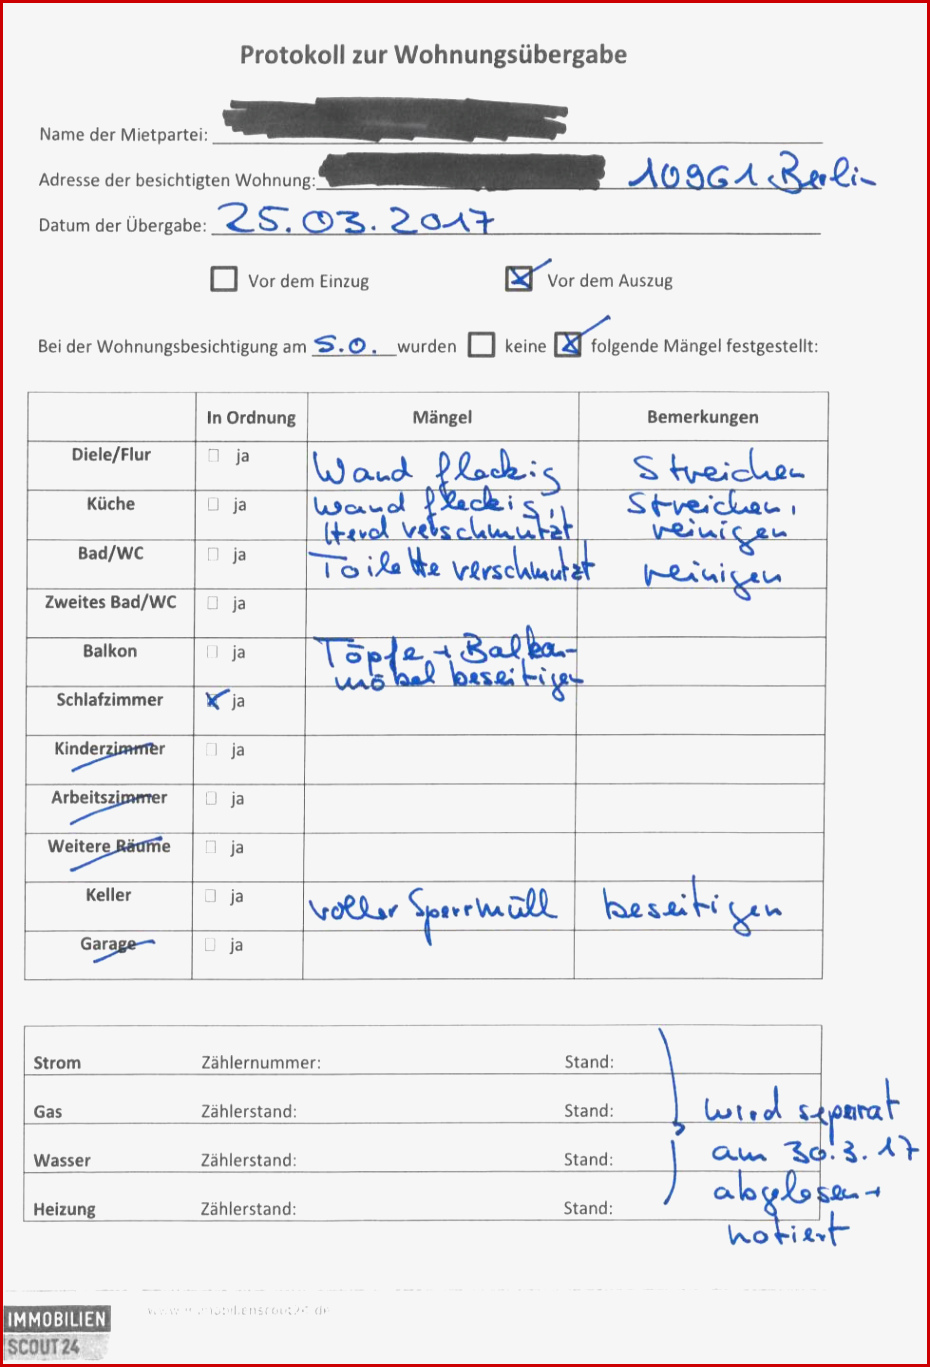 Protokoll zur Wohnungsübergabe
Name der Mietpartei:
Adresse der besichtigten Wohnung: 10961 Berlin
Datum der Übergabe: 25.03.2017
Vor dem Einzug Vor dem Auszug
Bei der Wohnungsbesichtigung am s.o. wurden keine folgende Mängel festgestellt:
In Ordnung Mängel Bemerkungen
Diele/Flur ja Wand fleckig Streichen
Küche ja Wand fleckig, Streichen,
Herd verschmutzt reinigen
Bad/WC ja Toilette verschmutzt reinigen
Zweites Bad/WC ja
Balkon ja Töpfe + Balkon-
möbel beseitigen
Schlafzimmer ja
Kinderzimmer ja
Arbeitszimmer ja
Weitere Räume ja
Keller ja voller Sperrmüll beseitigen
Garage ja
Strom Zählernummer: Stand:
Gas Zählerstand: Stand: wird separat
Wasser Zählerstand: Stand: am 30.3.17
Heizung Zählerstand: Stand: abgelesen +
notiert
www.immobilienscout24.de
IMMOBILIEN
SCOUT 24